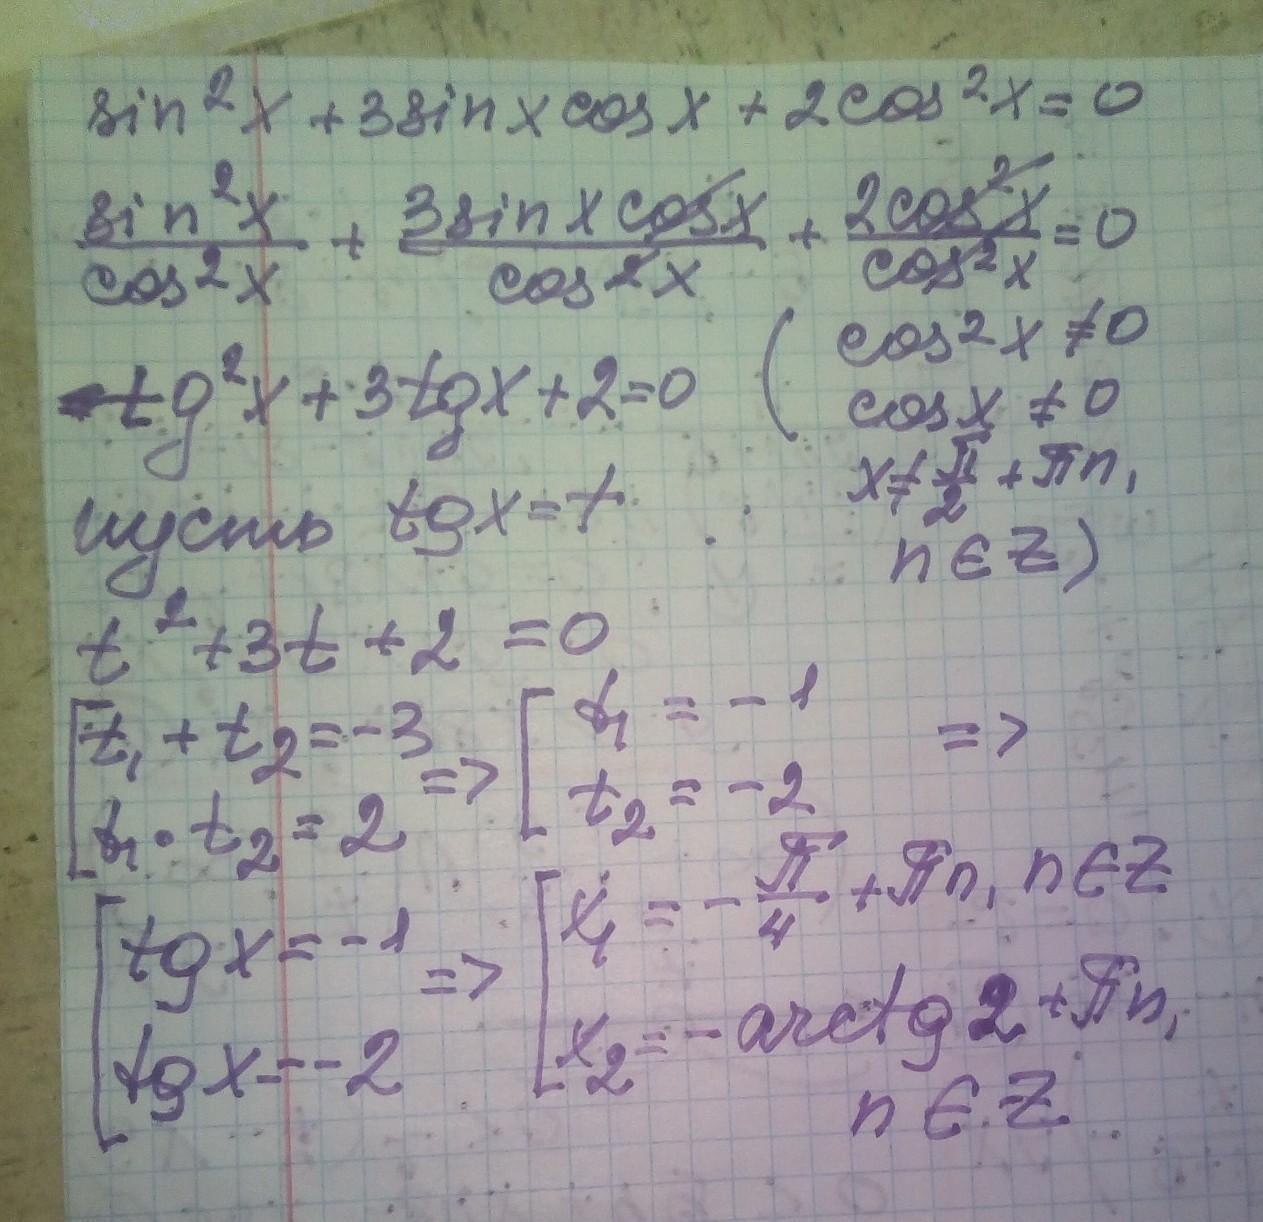 sin²x + 3sinx cosx + 2cos²x = 0
sin²x/cos²x + 3sinx cosx/cos²x + 2cos²x/cos²x = 0
tg²x + 3tgx + 2 = 0 ( cos²x ≠ 0
cosx ≠ 0
x ≠ π/2 + πn,
n ∈ Z)
пусть tgx = t
t² + 3t + 2 = 0
[ t₁ + t₂ = -3
t₁ · t₂ = 2 => [ t₁ = -1
t₂ = -2 =>
[ tgx = -1
tgx = -2 => [ x₁ = -π/4 + πn, n ∈ Z
x₂ = -arctg 2 + πn,
n ∈ Z